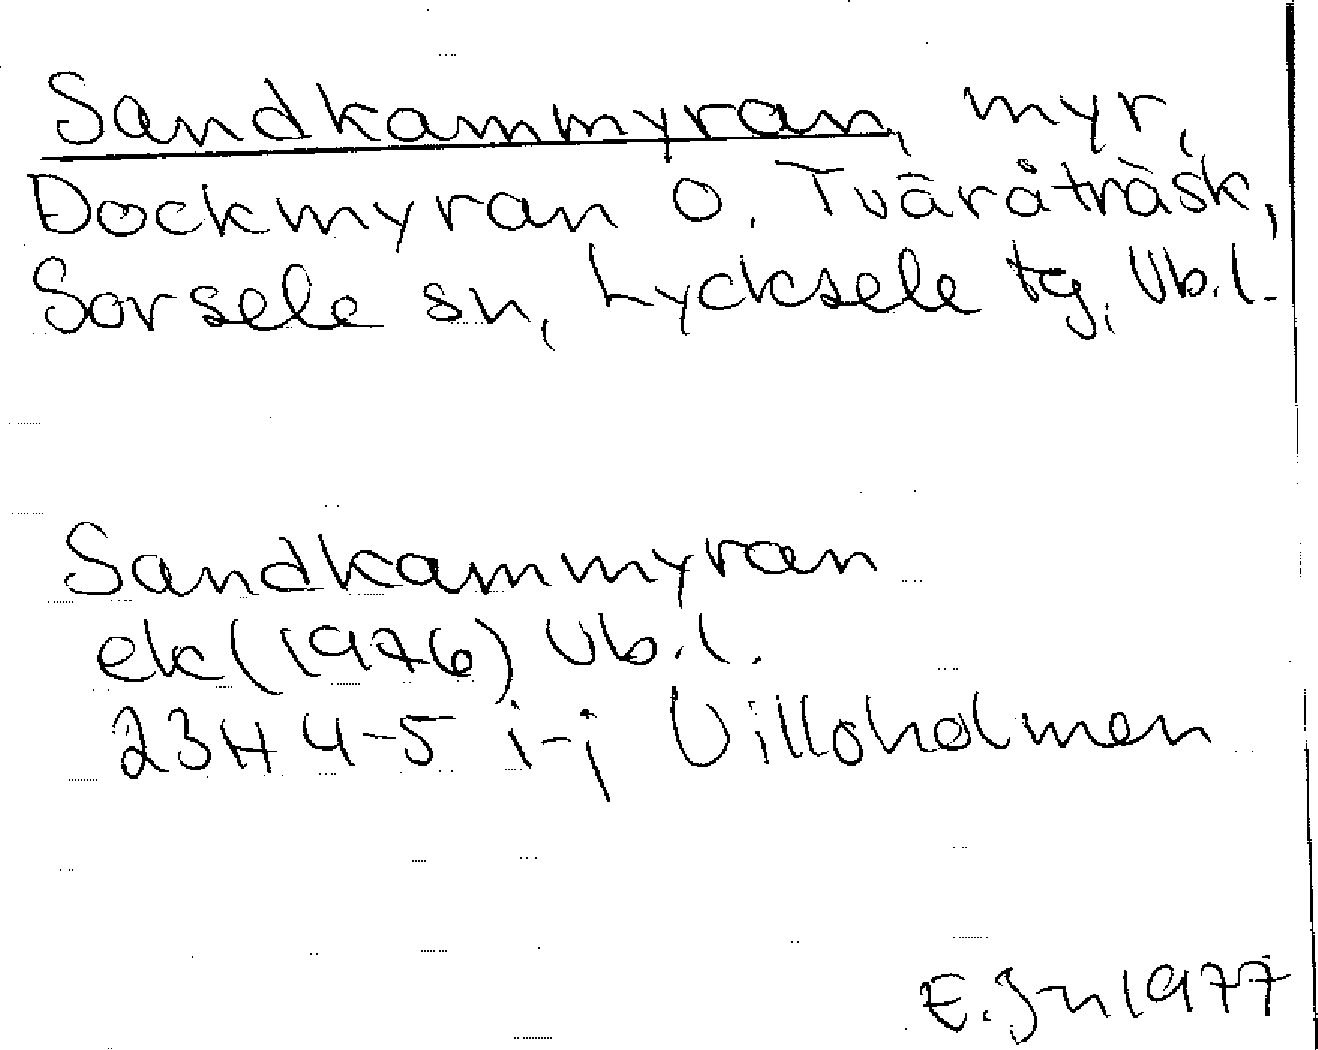 Sandkammyran, myr,
Dockmyran o. Tväråträsk,
Sorsele sn, Lycksele tg, Vb.l.
Sandkammyran
ek (1976) Vb.l.
23H 4-5 i-j Villoholmen
E. Jn 1977